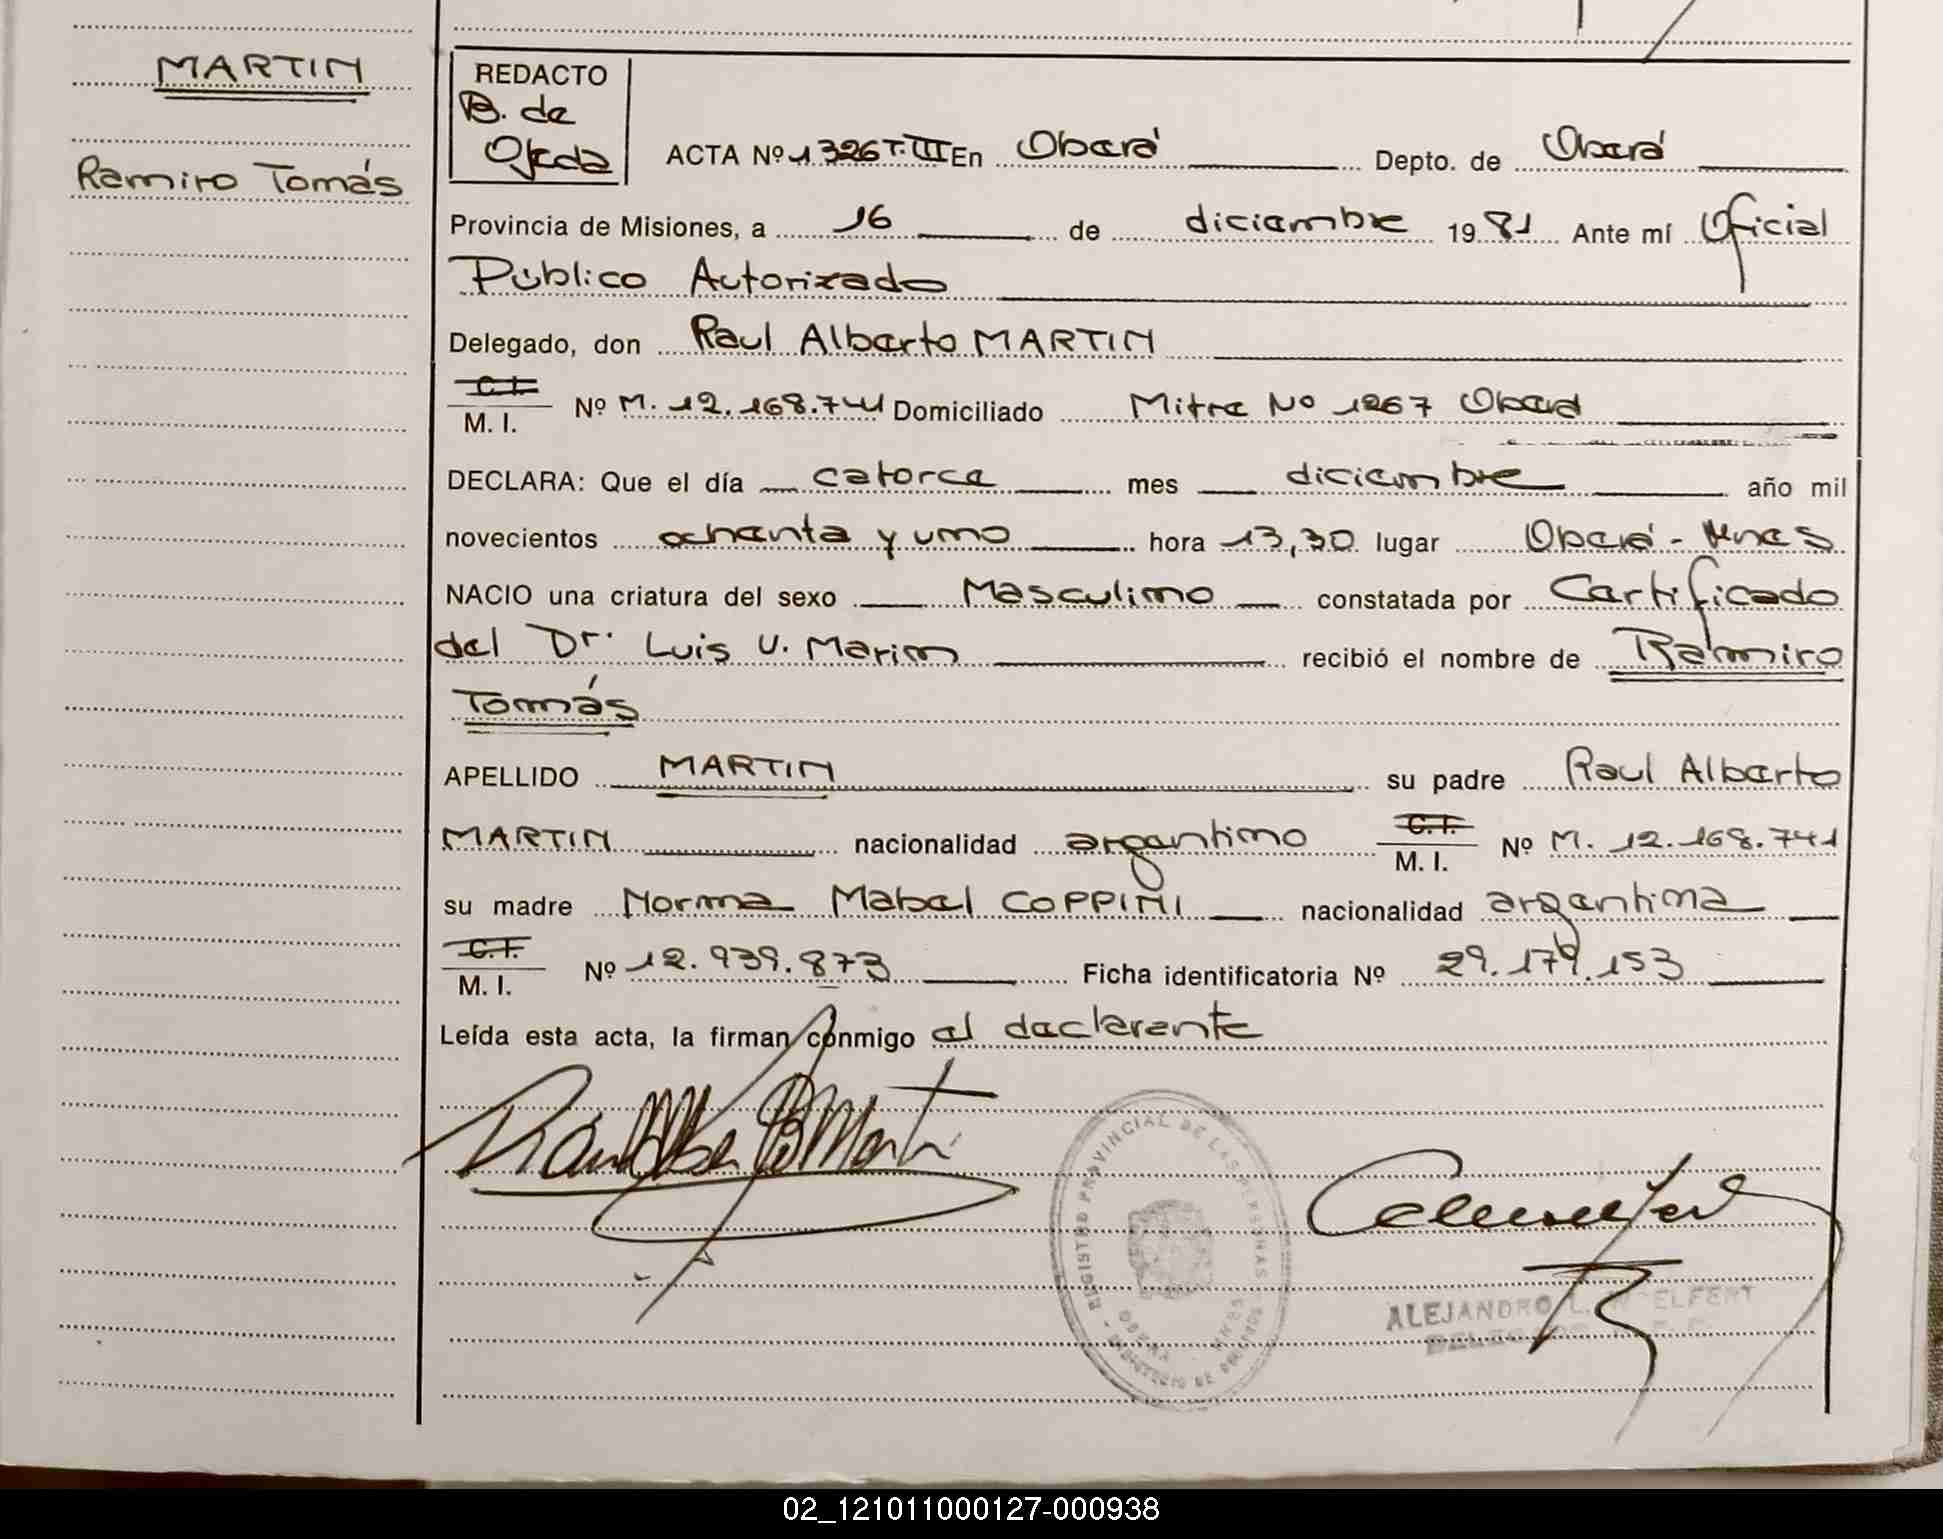 MARTIN
Ramiro Tomás
REDACTO
B. de
Ojeda
ACTA Nº 1326 T. III En Oberá Depto. de Oberá
Provincia de Misiones, a 16 de diciembre 1981 Ante mí Oficial
Público Autorizado
Delegado, don Raul Alberto MARTIN
C.I.
M. I. Nº M. 12.168.741 Domiciliado Mitre Nº 1267 Oberá
DECLARA: Que el día catorce mes diciembre año mil
novecientos ochenta y uno hora 13,30 lugar Oberá - Mnes
NACIO una criatura del sexo Masculino constatada por Certificado
del Dr. Luis U. Marim recibió el nombre de Ramiro
Tomás
APELLIDO MARTIN su padre Raul Alberto
MARTIN nacionalidad argentino C.I. M. I. Nº M. 12.168.741
su madre Norma Mabel COPPINI nacionalidad argentina
C.I.
M. I. Nº 12.939.873 Ficha identificatoria Nº 29.179.153
Leída esta acta, la firman conmigo el declarante
REGISTRO PROVINCIAL DE LAS PERSONAS
ALEJANDRO L.
02_121011000127-000938